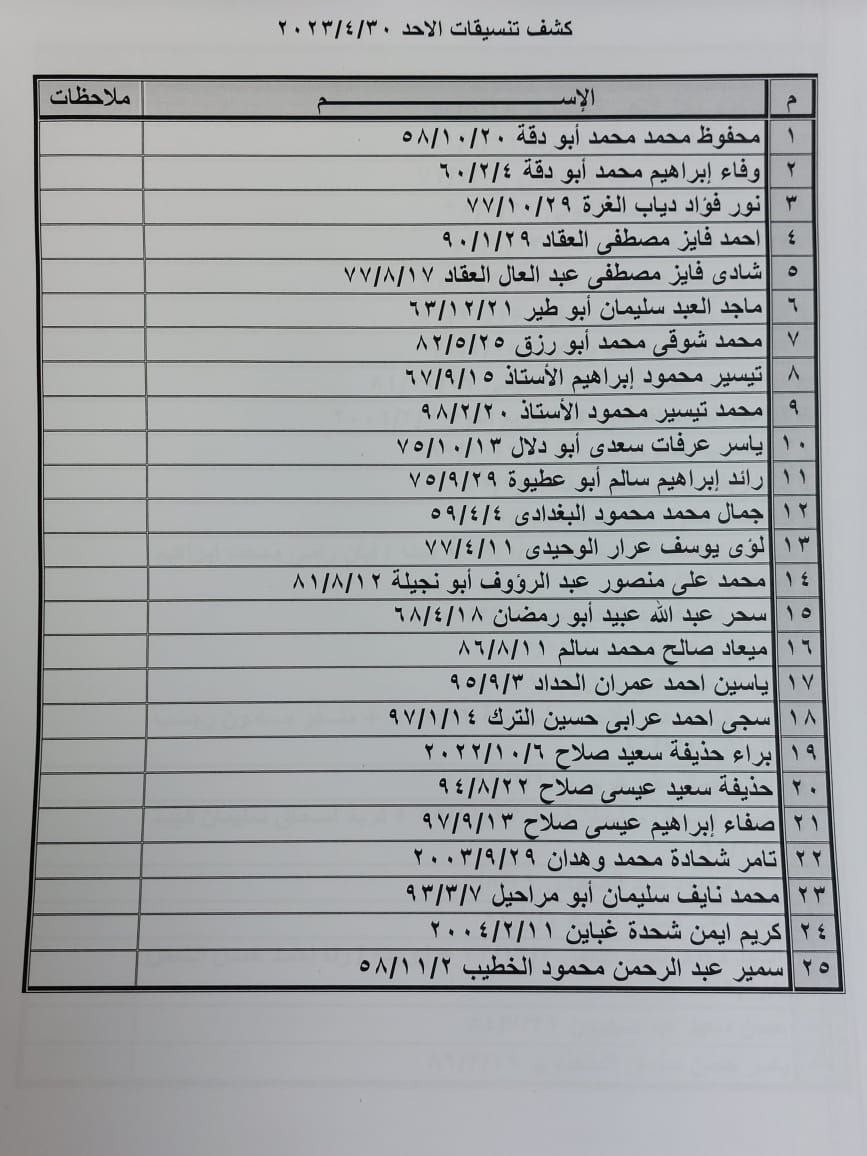 كشف تنسيقات الاحد ٢٠٢٣/٤/٣٠
م الإســـــــــــــــم ملاحظات
١ محفوظ محمد محمد أبو دقة ٥٨/١٠/٢٠
٢ وفاء إبراهيم محمد أبو دقة ٦٠/٢/٤
٣ نور فؤاد دياب الغرة ٧٧/١٠/٢٩
٤ احمد فايز مصطفى العقاد ٩٠/١/٢٩
٥ شادى فايز مصطفى عبد العال العقاد ٧٧/٨/١٧
٦ ماجد العبد سليمان أبو طير ٦٣/١٢/٢١
٧ محمد شوقى محمد أبو رزق ٨٢/٥/٢٥
٨ تيسير محمود إبراهيم الأستاذ ٦٧/٩/١٥
٩ محمد تيسير محمود الأستاذ ٩٨/٢/٢٠
١٠ ياسر عرفات سعدى أبو دلال ٧٥/١٠/١٣
١١ رائد إبراهيم سالم أبو عطيوة ٧٥/٩/٢٩
١٢ جمال محمد محمود البغدادى ٥٩/٤/٤
١٣ لؤى يوسف عرار الوحيدى ٧٧/٤/١١
١٤ محمد على منصور عبد الرؤوف أبو نجيلة ٨١/٨/١٢
١٥ سحر عبد الله عبيد أبو رمضان ٦٨/٤/١٨
١٦ ميعاد صالح محمد سالم ٨٦/٨/١١
١٧ ياسين احمد عمران الحداد ٩٥/٩/٣
١٨ سجى احمد عرابى حسين الترك ٩٧/١/١٤
١٩ براء حذيفة سعيد صلاح ٢٠٢٢/١٠/٦
٢٠ حذيفة سعيد عيسى صلاح ٩٤/٨/٢٢
٢١ صفاء إبراهيم عيسى صلاح ٩٧/٩/١٣
٢٢ تامر شحادة محمد وهدان ٢٠٠٣/٩/٢٩
٢٣ محمد نايف سليمان أبو مراحيل ٩٣/٣/٧
٢٤ كريم ايمن شحدة غباين ٢٠٠٤/٢/١١
٢٥ سمير عبد الرحمن محمود الخطيب ٥٨/١١/٢